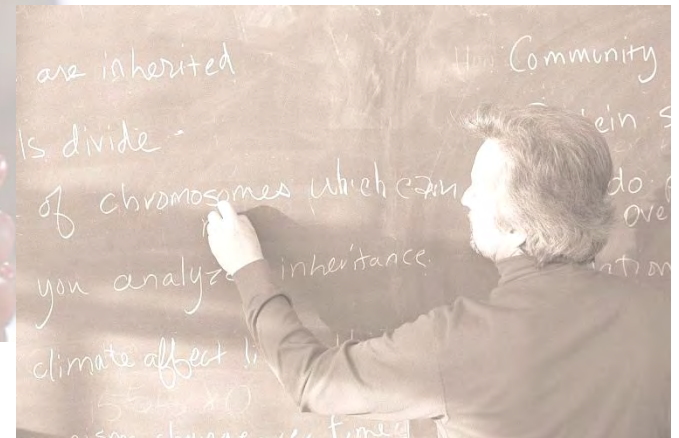 are inherited
ls divide -
of chromosomes which can
you analyze inheritance.
climate affect
change time
Community
ein s
do
ove